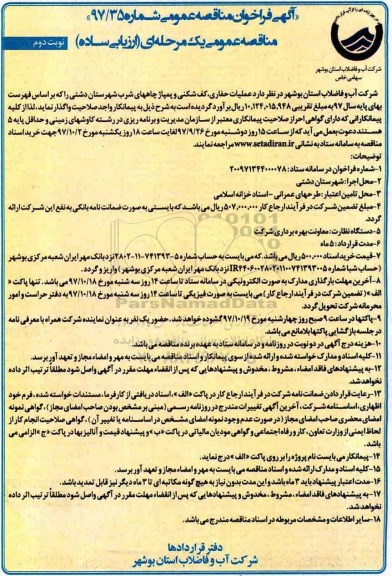 «آگهی فراخوان مناقصه عمومی شماره ۹۷/۳۵»
مناقصه عمومی یک مرحله‌ای (ارزیابی ساده)
نوبت دوم
شرکت آب و فاضلاب استان بوشهر
سهامی خاص
شرکت آب و فاضلاب استان بوشهر در نظر دارد عملیات حفاری، کف شکنی و پمپاژ چاههای شرب شهرستان دشتی را که بر اساس فهرست
بهای پایه سال ۹۷ به مبلغ تقریبی ۱۰,۱۲۴,۰۱۵,۹۴۸ ریال برآورد گردیده است به شرح ذیل به پیمانکار واجد صلاحیت واگذار نماید، لذا از کلیه
پیمانکارانی که دارای گواهی احراز صلاحیت پیمانکاری معتبر از سازمان مدیریت و برنامه ریزی در رشته کاوشهای زمینی و حداقل پایه ۵
هستند دعوت بعمل می آید که از ساعت ۱۵ روز دوشنبه مورخ ۹۷/۹/۲۶ لغایت ساعت ۱۸ روز یکشنبه مورخ ۹۷/۱۰/۲ جهت خرید اسناد
مناقصه به سامانه ستاد به نشانی www.setadiran.ir مراجعه نمایند.
توضیحات:
۱-شماره فراخوان در سامانه ستاد: ۲۰۰۹۷۱۳۴۴۰۰۰۰۷۸
۲-محل اجرا: شهرستان دشتی
۳-محل تامین اعتبار: طرحهای عمرانی - اسناد خزانه اسلامی
۴-مبلغ تضمین شرکت در فرآیند ارجاع کار ۵۰۷,۰۰۰,۰۰۰ ریال می باشد که بایستی به صورت ضمانت نامه بانکی به نفع این شرکت ارائه
گردد.
۵-دستگاه نظارت: معاونت بهره برداری شرکت
۶-مدت قرارداد: ۵ ماه
۷-قیمت خرید اسناد ۵۰۰,۰۰۰ ریال می باشد، که می بایست به حساب شماره
نزد بانک مهر ایران شعبه مرکزی بوشهر
(حساب شبا شماره
نزد بانک مهر ایران شعبه مرکزی بوشهر) واریز و گردد.
۸-آخرین مهلت بارگذاری مدارک به صورت الکترونیکی در سامانه ستاد تا ساعت ۱۴ روز سه شنبه مورخ ۹۷/۱۰/۱۸ می باشد. تنها پاکت «
الف» (تضمین شرکت در فرآیند ارجاع کار) می بایست به صورت فیزیکی تا ساعت ۱۴ روز سه شنبه مورخ ۹۷/۱۰/۱۸ به دفتر حراست و امور
محرمانه شرکت تحویل گردد.
۹-پاکتها در ساعت ۹ صبح روز چهارشنبه مورخ ۹۷/۱۰/۱۹ گشوده خواهد شد. حضور یک نفر به عنوان نماینده شرکت همراه با معرفی نامه
در جلسه بازگشایی پاکتها بلامانع می باشد.
۱۰-هزینه درج آگهی در دو نوبت در روزنامه و در سامانه ستاد به عهده برنده مناقصه می باشد.
۱۱-کلیه اسناد و مدارک خواسته شده و ارائه شده از سوی پیمانکار و اسناد مناقصه می بایست به مهر و امضاء مجاز و تعهد آور برسد.
۱۲-به پیشنهادهای فاقد امضاء، مشروط، مخدوش و پیشنهادهایی که پس از انقضاء مهلت مقرر در آگهی واصل شود مطلقاً ترتیب اثر داده
نخواهد شد.
۱۳-رعایت قرار دادن ضمانت نامه شرکت در فرآیند ارجاع کار در پاکت «الف»، اسناد دریافتی از کارفرما، مستندات خواسته شده، فرم خود
اظهاری، اساسنامه شرکت، آخرین آگهی تغییرات مندرج در روزنامه رسمی (مبنی بر مشخص بودن صاحب امضای مجاز)، گواهی نمونه
امضای محضری صاحب امضای مجاز (در صورت عدم وجود نمونه امضای مشخص در اساسنامه یا تغییر آن)، گواهی صلاحیت انجام کار از
لحاظ ایمنی از وزارت تعاون، کار و رفاه اجتماعی و گواهی مودیان مالیاتی در پاکت «ب» و پیشنهاد قیمت و آنالیز بها در پاکت «ج» الزامی می
باشد.
۱۴-پیمانکار می بایست نام پروژه را بر روی پاکت «الف» درج نماید.
۱۵-کلیه اسناد و مدارک ارائه شده و اسناد مناقصه می بایست به مهر و امضاء مجاز و تعهد آور برسد.
۱۶-مدت اعتبار پیشنهاد باید ۳ ماه باشد و این مدت بدون نیاز به هیچ گونه مکاتبه ای تا ۳ ماه دیگر نیز قابل تمدید باشد.
۱۷-به پیشنهادهای فاقد امضاء، مشروط، مخدوش و پیشنهادهایی که پس از انقضاء مهلت مقرر در آگهی واصل شود مطلقاً ترتیب اثر داده
نخواهد شد.
۱۸-سایر اطلاعات و مشخصات مربوطه در اسناد مناقصه مندرج می باشد.
دفتر قراردادها
شرکت آب و فاضلاب استان بوشهر